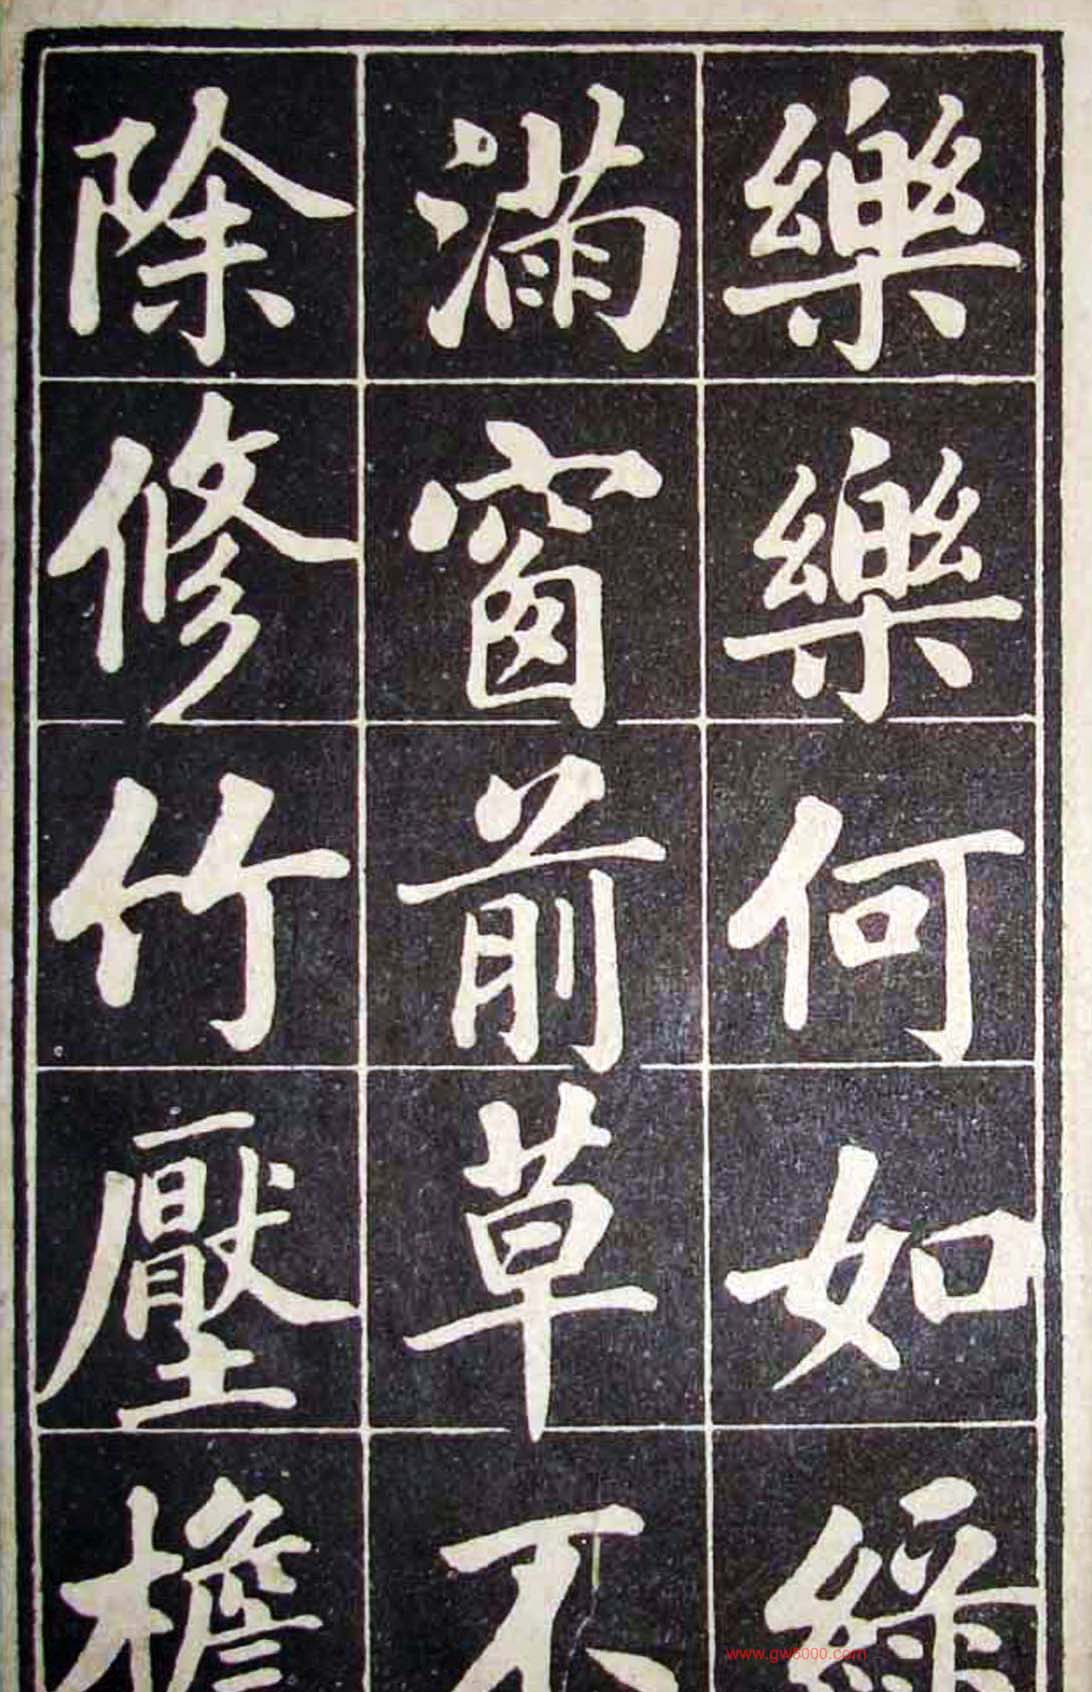 樂樂何如綠
滿窗前草不
除修竹壓檐
www.gw5000.com